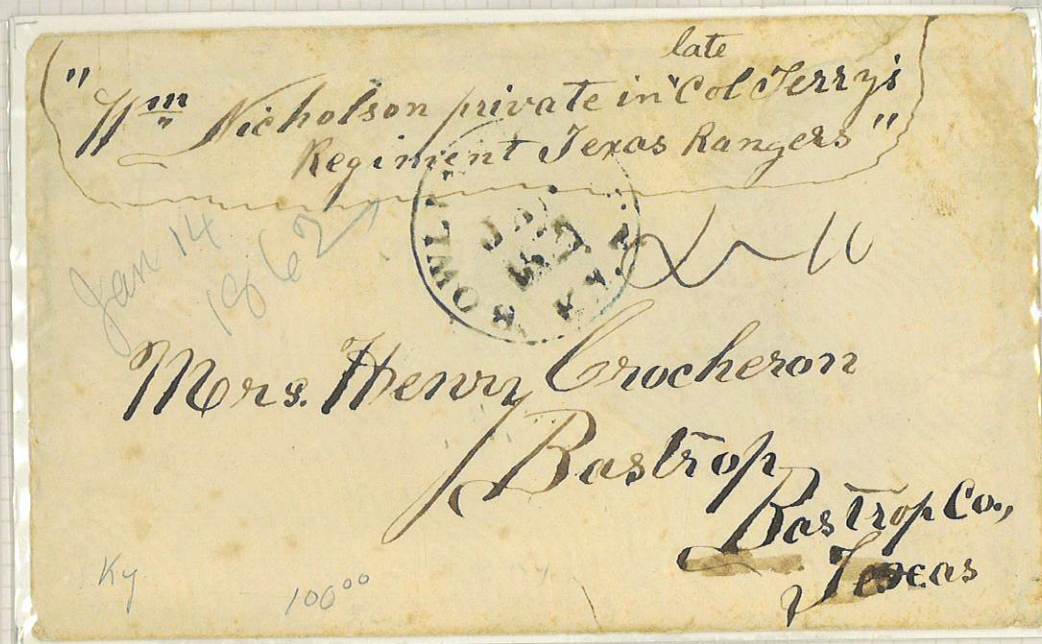 late
"Wm Nicholson private in "Col Terry's
Regiment Texas Rangers"
Jan 14
1862
BOWL
JAN
KY
10
Mrs. Henry Crocheron
Bastrop
Bastrop Co.,
Texas
Ky
100 00